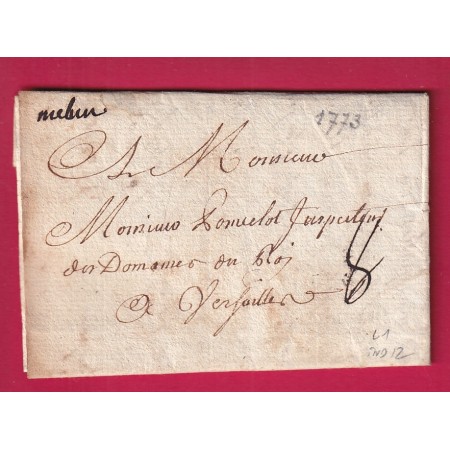 melun
1773
A Monsieur
Monsieur Pomelot Inspecteur
des Domaines du Roi
a Versailles
8
L1
IND 12